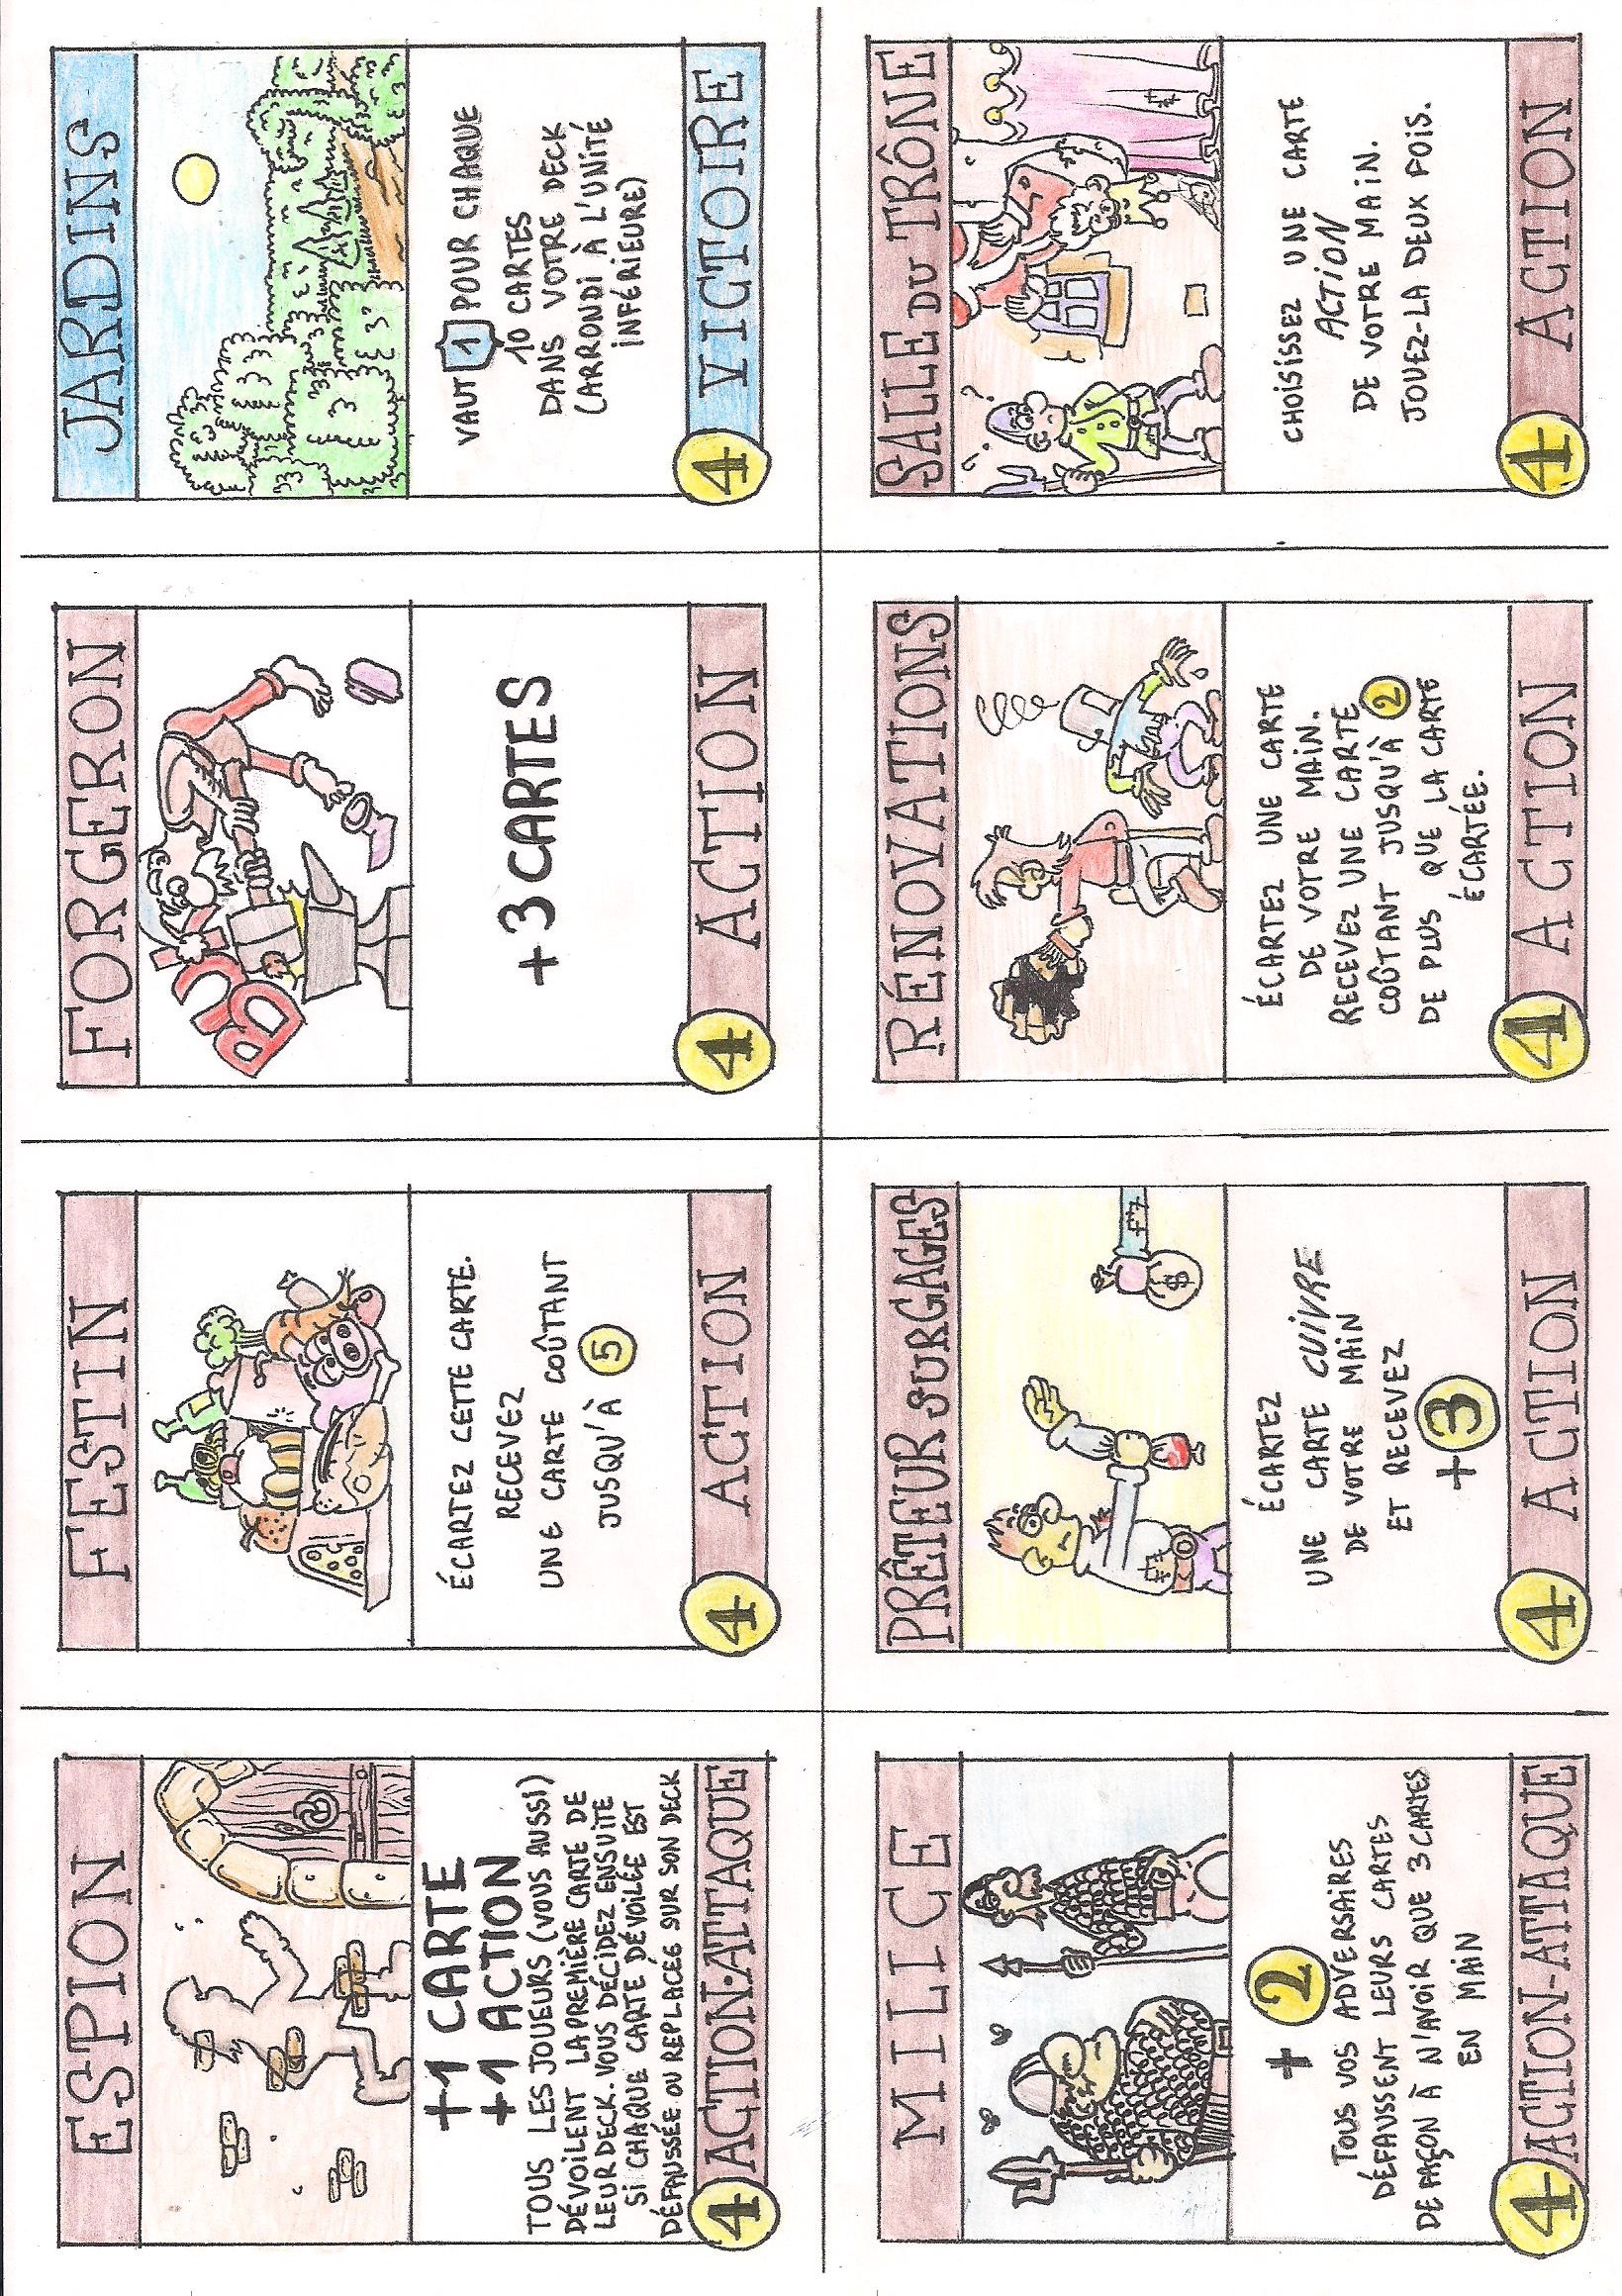 ESPION
+1 CARTE
+1 ACTION
TOUS LES JOUEURS (VOUS AUSSI)
DÉVOILENT LA PREMIÈRE CARTE DE
LEUR DECK. VOUS DÉCIDEZ ENSUITE
SI CHAQUE CARTE DÉVOILÉE EST
DÉFAUSSÉE OU REPLACÉE SUR SON DECK
4 ACTION-ATTAQUE
FESTIN
ÉCARTEZ CETTE CARTE.
RECEVEZ
UNE CARTE COÛTANT
JUSQU'À 5
4 ACTION
FORGERON
+3 CARTES
4 ACTION
JARDINS
VAUT 1 POUR CHAQUE
10 CARTES
DANS VOTRE DECK
(ARRONDI À L'UNITÉ
INFÉRIEURE)
4 VICTOIRE
MILICE
+ 2
TOUS VOS ADVERSAIRES
DÉFAUSSENT LEURS CARTES
DE FAÇON À N'AVOIR QUE 3 CARTES
EN MAIN
4 ACTION-ATTAQUE
PRÊTEUR SUR GAGES
$
ÉCARTEZ
UNE CARTE CUIVRE
DE VOTRE MAIN
ET RECEVEZ
+3
4 ACTION
RÉNOVATIONS
ÉCARTEZ UNE CARTE
DE VOTRE MAIN.
RECEVEZ UNE CARTE
COÛTANT JUSQU'À 2
DE PLUS QUE LA CARTE
ÉCARTÉE.
4 ACTION
SALLE DU TRÔNE
? ?
CHOISISSEZ UNE CARTE
ACTION
DE VOTRE MAIN.
JOUEZ-LA DEUX FOIS.
4 ACTION